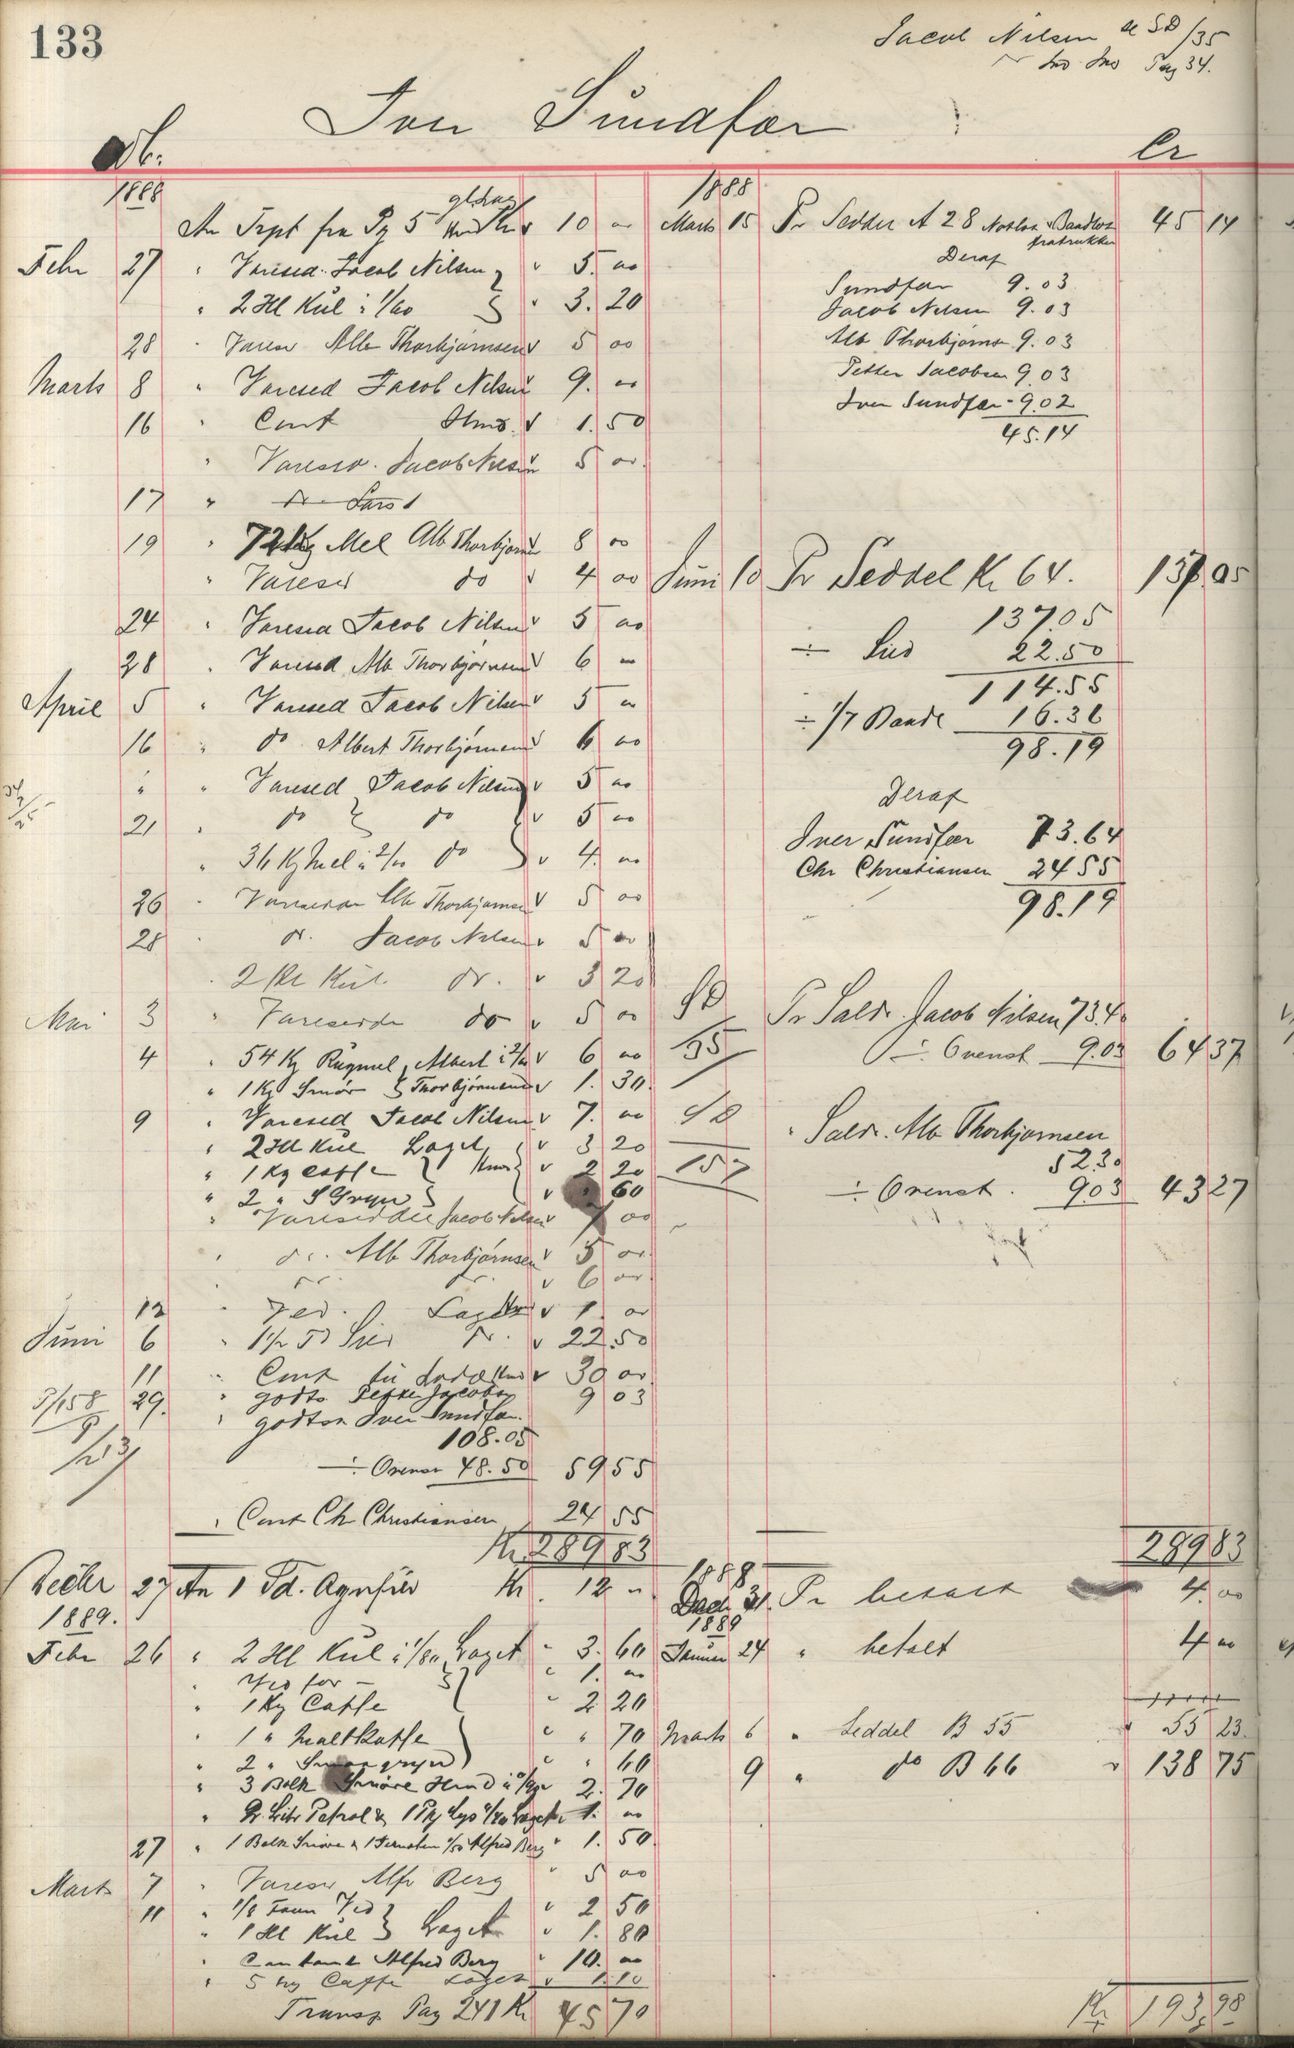 133
Jacob Nilsen se SD/35
Pag 34.
Iver Sundfær
Db.
Cr
1888
An Trpt fra Pg 5 Kr 10 "
Febr 27 " Varesed. Jacob Nilsen 5. 00
" 2 Hl Kul à 1/60 3. 20
28 " Varesed Alb Thorbjørnsen 5 00
Marts 8 " Varesed Jacob Nilsen 9. 00
16 " Cont 1. 50
" Varesed. Jacob Nilsen 5 00
17 "
19 " 72 Kg Mel Alb Thorbjørnsen 8 00
" Varesed do 4 00
24 " Varesed Jacob Nilsen 5 00
28 " Varesed Alb Thorbjørnsen 6 "
April 5 " Varesed Jacob Nilsen 5 "
16 " do Albert Thorbjørnsen 6 00
" " Varesed Jacob Nilsen 5 00
21 " do do 5 00
" 36 Kg Mel à 2/00 do 4. 00
26 " Varesedel Alb Thorbjørnsen 5 00
28 " do. Jacob Nilsen 5 00
" 2 Hl Kul. do. 3 20
Mai 3 " Vareseddel do 5 00
4 " 54 Kg Rugmel Albert à 2/00 6 00
" 1 Kg Smør Thorbjørnsen 1. 30
9 " Varesed Jacob Nilsen 7. 00
" 2 Hl Kul Laget 3 20
" 1 Kg Caffe 2 20
" 2 " S Gryn " 60
" Vareseddel Jacob Nilsen 7 00
" do. Alb Thorbjørnsen 5 00
" 6 00
12 " Ved. Laget 1. 00
Juni 6 " 1 1/2 Td Sild do. 22. 50
11 " Cont 30 00
P/158 29. " godts Petter Jacobsen 9 03
" godtsk Iver Sundfær
108.05
÷ Ovenst 48.50 59 55
" Cont Ch Christiansen 24 55
Kr. 289 83
Decbr 27 An 1 Td. Agnsild Kr. 12 "
1889.
Febr 26 " 2 Hl Kul à 1/80 Laget 3. 60
" Ved for 1. 00
" 1 Kg Caffe 2 20
" 1 " Maltkaffe " 70
" 2 " Smaagryn " 60
" 3 Boll 2. 70
" 2 Litr Petrol & 1 Pk Lys Laget 1. 00
27 " Alfred Berg 1. 50
Marts 7 " Varesed Alfr Berg 5 00
11 " 1/8 Favn Ved 2 50
" 1 Hl Kul Laget 1. 80
" Contant Alfred Berg 10. 00
" 5 hg Caffe Laget 1. 10
Transp Pag 241 Kr 45 70
1888
Marts 15 Pr Seddel A 28 45 14
fratrukken
Deraf
Sundfær 9.03
Jacob Nilsen 9.03
Alb Thorbjørnsen 9.03
Petter Jacobsen 9.03
Iver Sundfær 9.02
45.14
Juni 10 Pr Seddel Kr 64. 137. 05
137.05
÷ Sild 22.50
114.55
÷ 1/7 Baade 16.36
98.19
Deraf
Iver Sundfær 73.64
Chr Christiansen 24 55
98.19
SD
35
Pr Saldo Jacob Nilsen 73.40
÷ Ovenst 9.03 64 37
SD
157
" Saldo. Alb Thorbjørnsen
52.30
÷ Ovenst. 9.03 43 27
289 83
1888
Decb 31. Pr betalt 4. 00
1889
Januar 24 " betalt 4 00
Marts 6 " Seddel B 55 55 23.
9 " do B 66 138 75
Kr 193 98